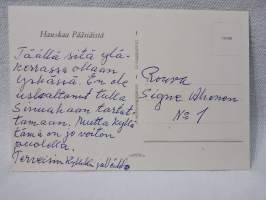 Hauskaa Pääsiäistä
Täällä sitä ylä-
kerrassa ollaan
lysässä. En ole
uskaltanut tulla
Sinuahaan tartut-
tamaan. Mutta kyllä
tämä on jo voiton
puolella.
Terveisin Kyllikki ja Veikko
Rouva
Signe Ahonen
No 1